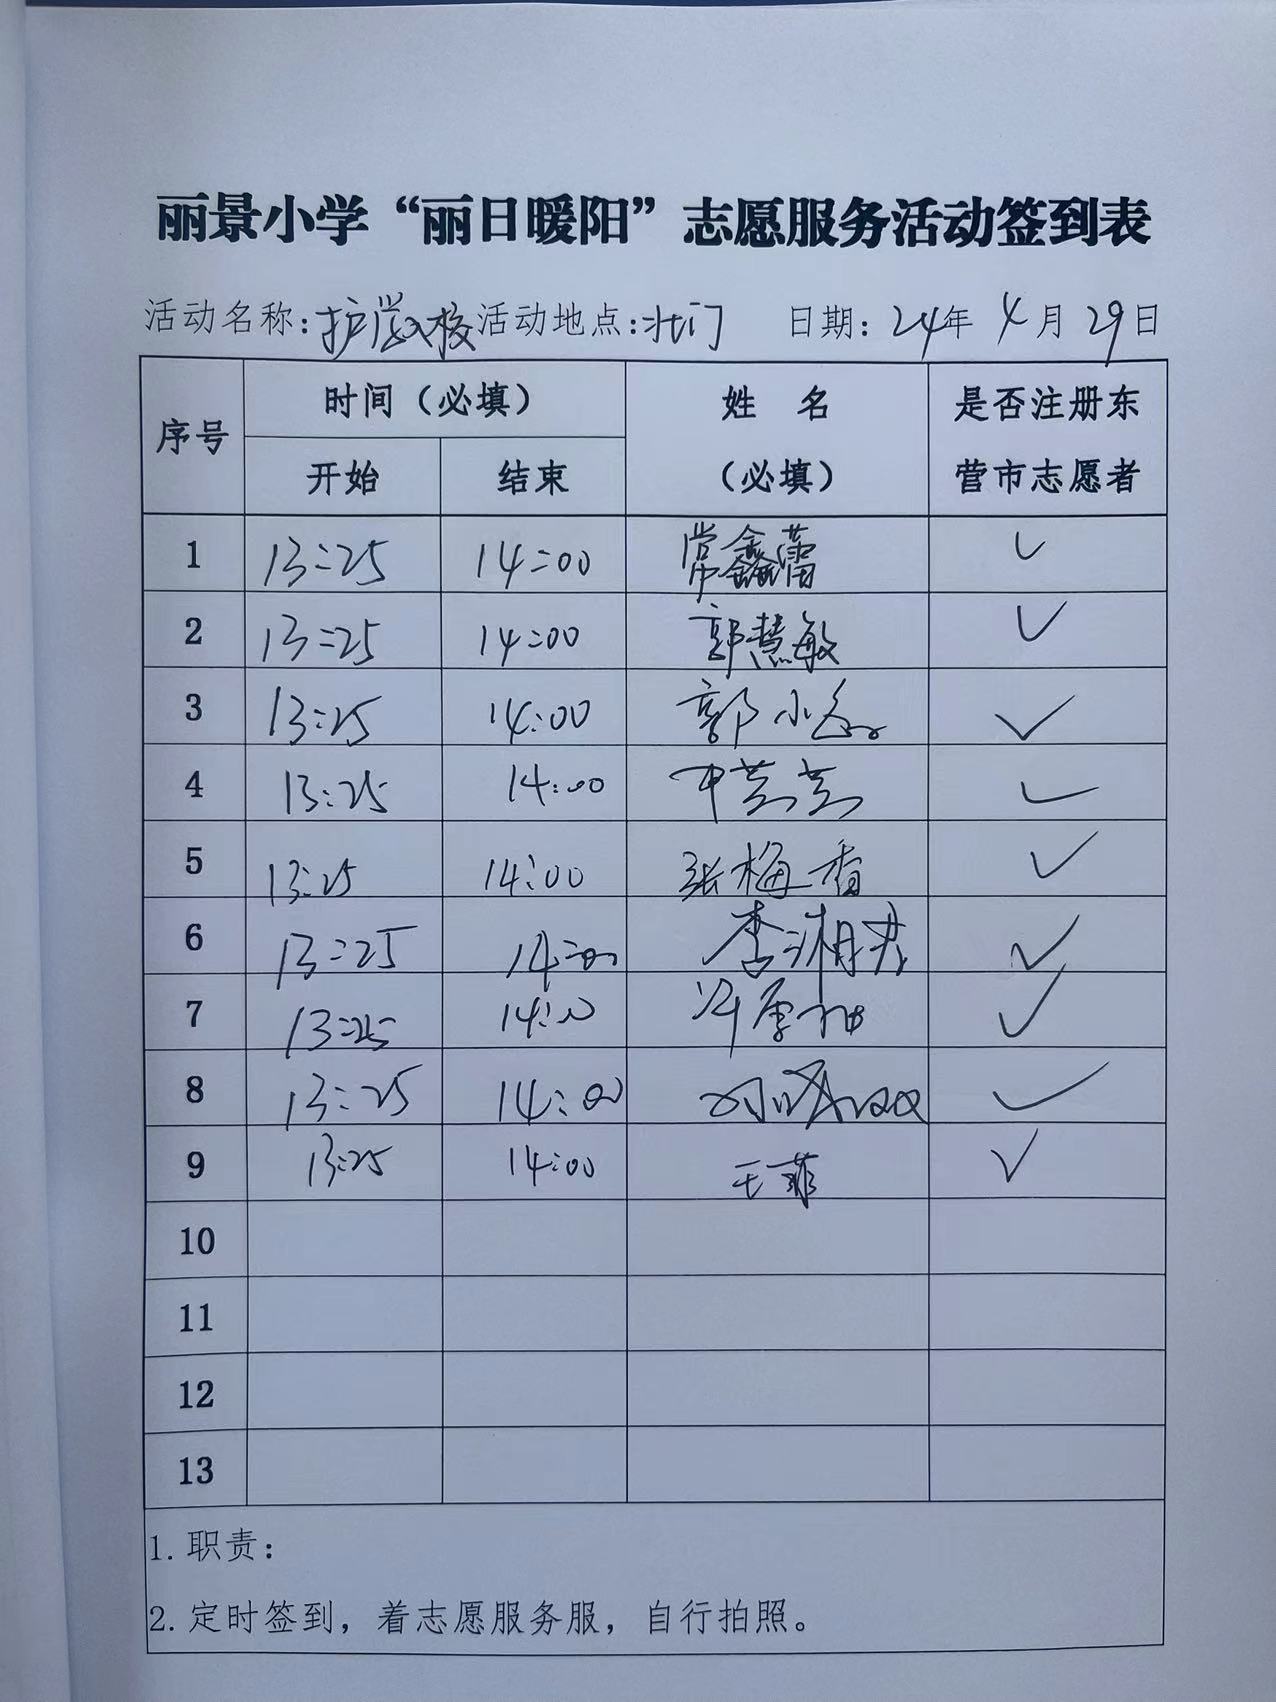 丽景小学“丽日暖阳”志愿服务活动签到表
活动名称:护学入校 活动地点:北门 日期: 24年 4月 29日
序号 时间（必填） 姓 名（必填） 是否注册东营市志愿者
开始 结束
1 13:25 14:00 常鑫蕾 ✓
2 13:25 14:00 郭慧敏 ✓
3 13:25 14:00 郭小 ✓
4 13:25 14:00 ✓
5 13:25 14:00 张梅香 ✓
6 13:25 14:00 李湘君 ✓
7 13:25 14:00 ✓
8 13:25 14:00 ✓
9 13:25 14:00 王菲 ✓
10
11
12
13
1. 职责：
2. 定时签到，着志愿服务服，自行拍照。